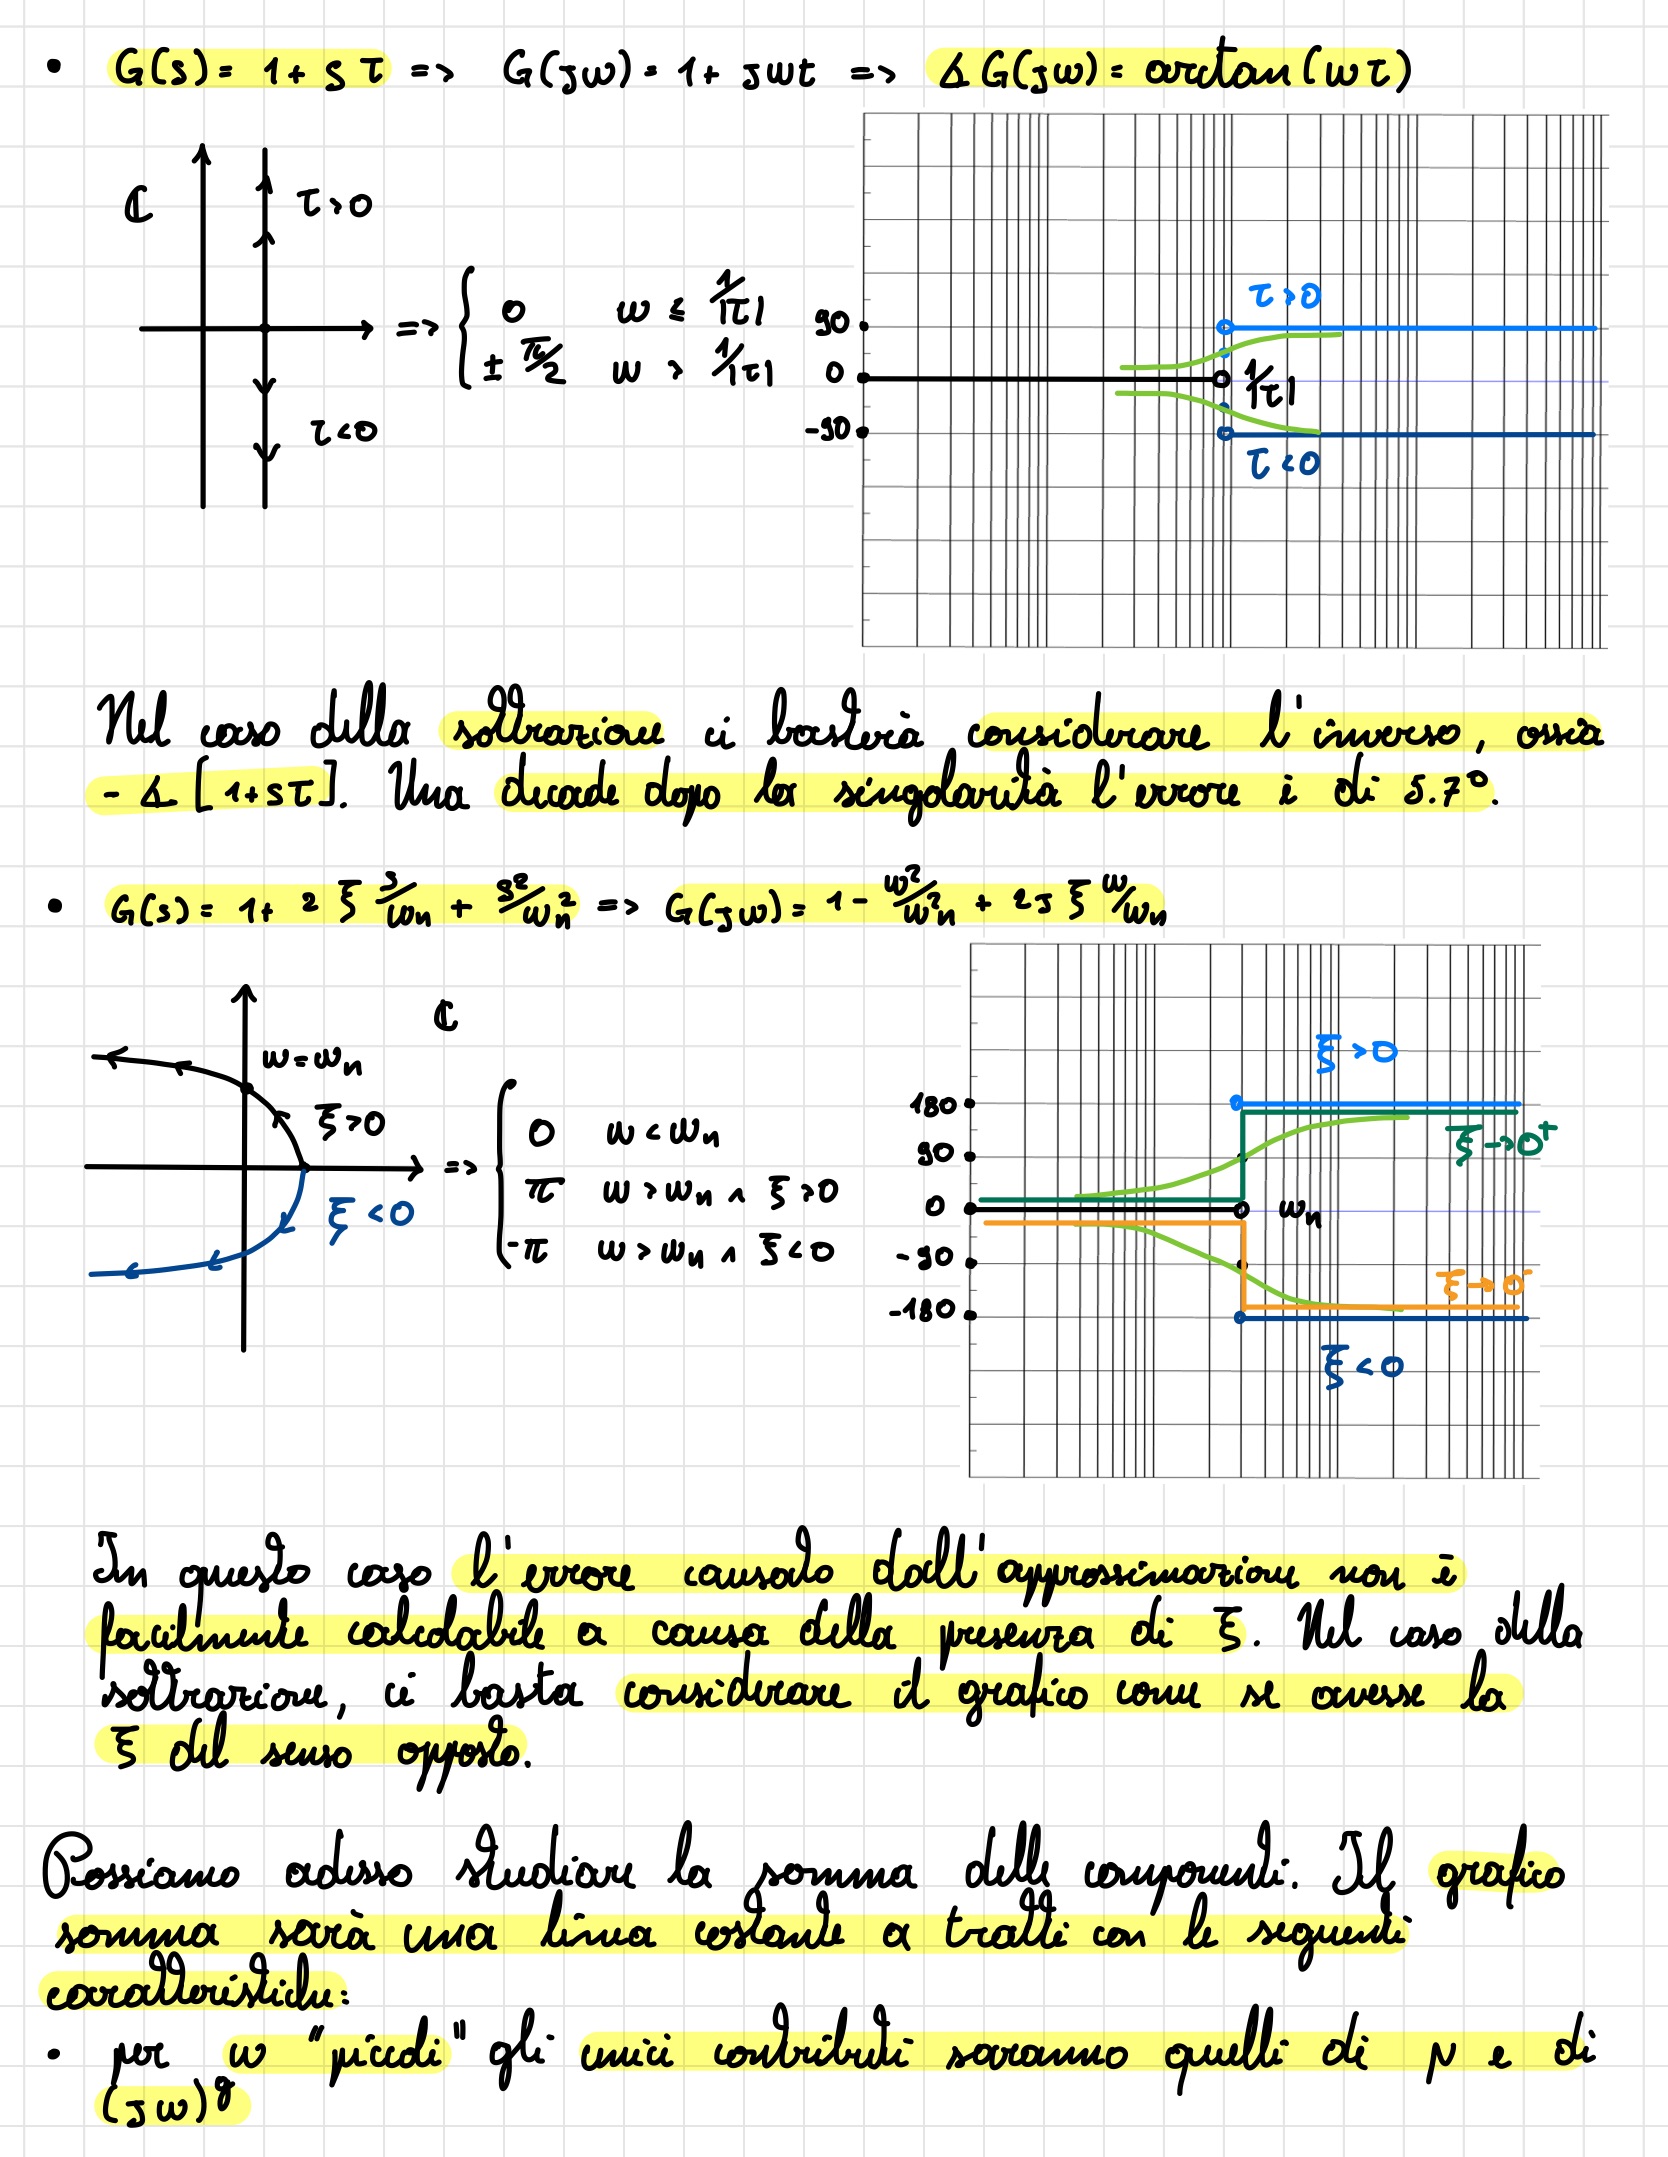 • G(s) = 1 + sτ => G(jω) = 1 + jωt => ∡G(jω) = arctan(ωτ)
ℂ
τ>0
τ<0
=> { 0 ω ≤ 1/|τ|
± π/2 ω > 1/|τ|
90
0
-90
τ>0
1/|τ|
τ<0
Nel caso della sottrazione ci basterà considerare l'inverso, ossia
- ∡[1+sτ]. Una decade dopo la singolarità l'errore è di 5.7°.
• G(s) = 1 + 2 ξ s/ωn + s²/ωn² => G(jω) = 1 - ω²/ωn² + 2j ξ ω/ωn
ℂ
ω=ωn
ξ>0
ξ<0
=> { 0 ω < ωn
π ω > ωn ∧ ξ>0
-π ω > ωn ∧ ξ<0
180
90
0
-90
-180
ξ>0
ξ→0⁺
ωn
ξ→0⁻
ξ<0
In questo caso l'errore causato dall'approssimazione non è
facilmente calcolabile a causa della presenza di ξ. Nel caso della
sottrazione, ci basta considerare il grafico come se avesse la
ξ del senso opposto.
Possiamo adesso studiare la somma delle componenti. Il grafico
somma sarà una linea costante a tratti con le seguenti
caratteristiche:
• per ω "piccoli" gli unici contributi saranno quelli di μ e di
(jω)^g